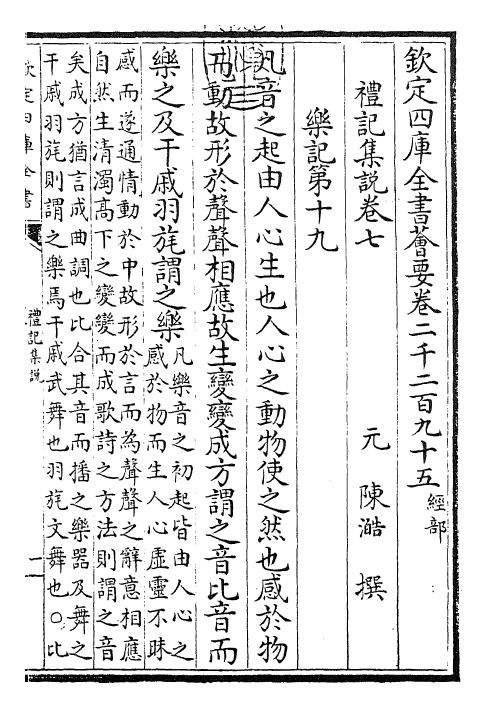 欽定四庫全書薈要卷二千二百九十五 經部
禮記集說卷七
元 陳澔 撰
樂記第十九
凡音之起由人心生也人心之動物使之然也感於物
而動故形於聲聲相應故生變變成方謂之音比音而
樂之及干戚羽旄謂之樂 凡樂音之初起皆由人心之
感於物而生人心虛靈不昧
感而遂通情動於中故形於言而為聲聲之辭意相應
自然生清濁高下之變變而成歌詩之方法則謂之音
矣成方猶言成曲調也比合其音而播之樂器及舞之
干戚羽旄則謂之樂焉干戚武舞也羽旄文舞也○比
欽定四庫全書
禮記集說
一